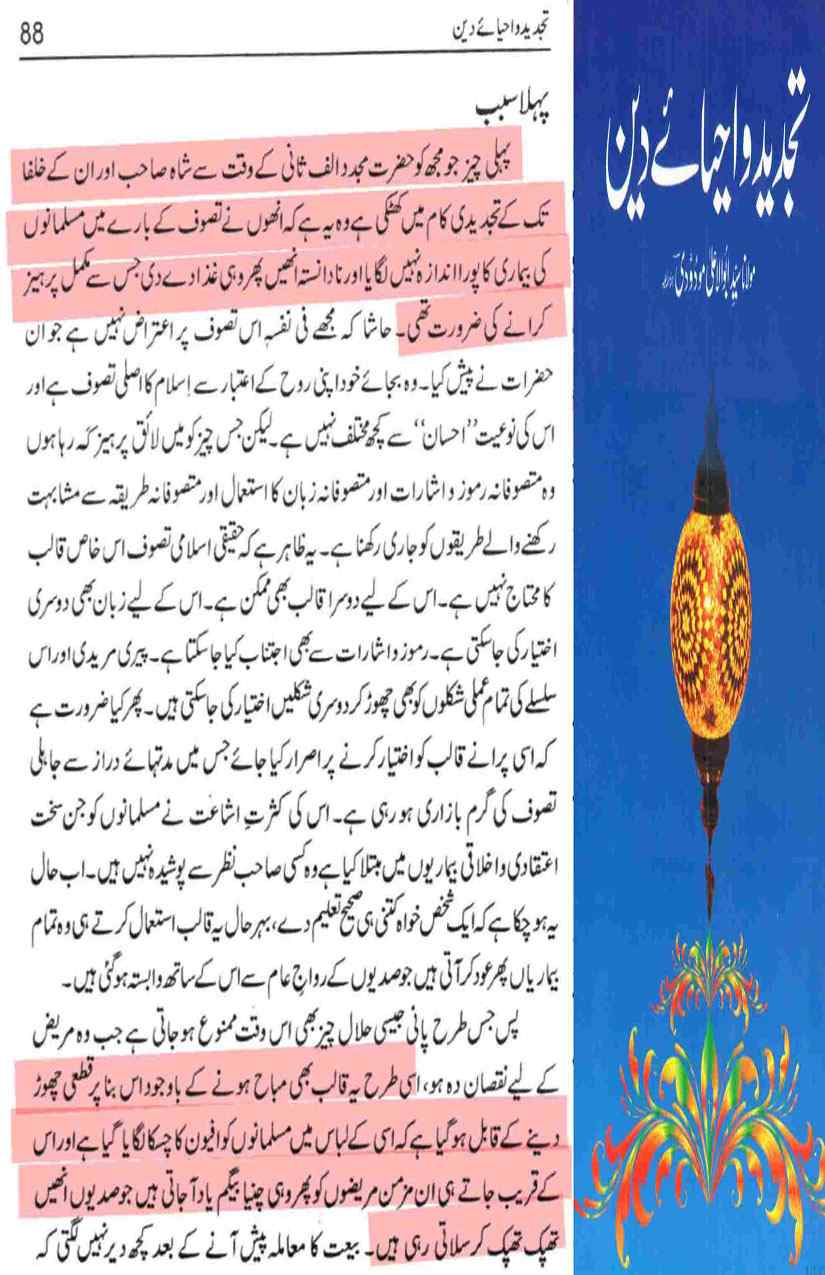 تجدید و احیائے دین
88
پہلا سبب
پہلی چیز جو مجھ کو حضرت مجدد الف ثانی کے وقت سے شاہ صاحب اور ان کے خلفا
تک کے تجدیدی کام میں کھٹکی ہے وہ یہ ہے کہ انھوں نے تصوف کے بارے میں مسلمانوں
کی بیماری کا پورا اندازہ نہیں لگایا اور نادانستہ انھیں پھر وہی غذا دے دی جس سے مکمل پرہیز
کرانے کی ضرورت تھی۔ حاشا کہ مجھے فی نفسہٖ اس تصوف پر اعتراض نہیں ہے جو ان
حضرات نے پیش کیا۔ وہ بجائے خود اپنی روح کے اعتبار سے اسلام کا اصلی تصوف ہے اور
اس کی نوعیت ’’احسان‘‘ سے کچھ مختلف نہیں ہے۔ لیکن جس چیز کو میں لائق پرہیز کہہ رہا ہوں
وہ متصوفانہ رموز و اشارات اور متصوفانہ زبان کا استعمال اور متصوفانہ طریقہ سے مشابہت
رکھنے والے طریقوں کو جاری رکھنا ہے۔ یہ ظاہر ہے کہ حقیقی اسلامی تصوف اس خاص قالب
کا محتاج نہیں ہے۔ اس کے لیے دوسرا قالب بھی ممکن ہے۔ اس کے لیے زبان بھی دوسری
اختیار کی جاسکتی ہے۔ رموز و اشارات سے بھی اجتناب کیا جاسکتا ہے۔ پیری مریدی اور اس
سلسلے کی تمام عملی شکلوں کو بھی چھوڑ کر دوسری شکلیں اختیار کی جاسکتی ہیں۔ پھر کیا ضرورت ہے
کہ اسی پرانے قالب کو اختیار کرنے پر اصرار کیا جائے جس میں مدتہائے دراز سے جاہلی
تصوف کی گرم بازاری ہو رہی ہے۔ اس کی کثرتِ اشاعت نے مسلمانوں کو جن سخت
اعتقادی و اخلاقی بیماریوں میں مبتلا کیا ہے وہ کسی صاحب نظر سے پوشیدہ نہیں ہیں۔ اب حال
یہ ہو چکا ہے کہ ایک شخص خواہ کتنی ہی صحیح تعلیم دے، بہرحال یہ قالب استعمال کرتے ہی وہ تمام
بیماریاں پھر عود کر آتی ہیں جو صدیوں کے رواجِ عام سے اس کے ساتھ وابستہ ہو گئی ہیں۔
پس جس طرح پانی جیسی حلال چیز بھی اس وقت ممنوع ہو جاتی ہے جب وہ مریض
کے لیے نقصان دہ ہو، اسی طرح یہ قالب بھی مباح ہونے کے باوجود اس بنا پر قطعی چھوڑ
دینے کے قابل ہو گیا ہے کہ اسی کے لباس میں مسلمانوں کو افیون کا چسکا لگایا گیا ہے اور اس
کے قریب جاتے ہی ان مزمن مریضوں کو پھر وہی چنیا بیگم یاد آجاتی ہیں جو صدیوں انھیں
تھپک تھپک کر سلاتی رہی ہیں۔ بیعت کا معاملہ پیش آنے کے بعد کچھ دیر نہیں لگتی کہ
تجدید و احیائے دین
مولانا سید ابوالاعلیٰ مودودی